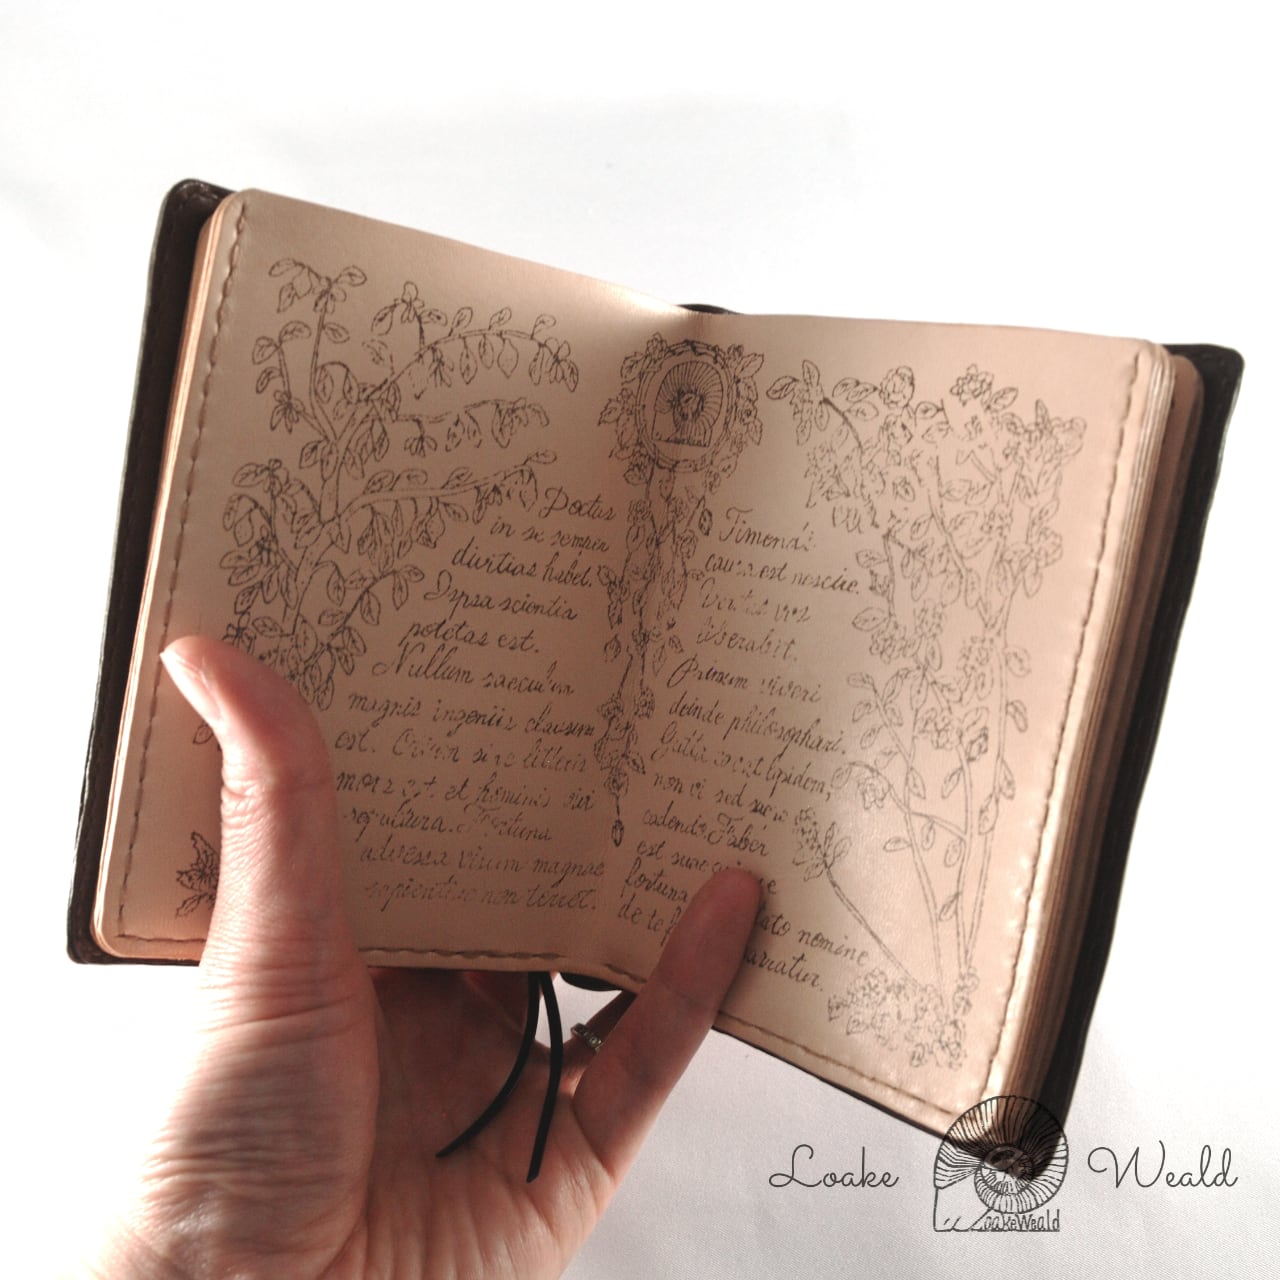 Doctus
in se semper
divitias habet.
Ipsa scientia
potetas est.
Nullum saeculum
magnis ingeniis clausum
est. Otium sine litteris
mors est et hominis vivi
sepultura. Fortuna
adversa virum magnae
sapientiae non terret.
Timendi
causa est nescire.
Veritas vos
liberabit.
Primum viveri
deinde philosophari.
Gutta cavat lapidem,
non vi sed saepe
cadendo. Faber
est suae
fortuna
de te tato nomine
arratur.
Loake Weald
LoakeWeald